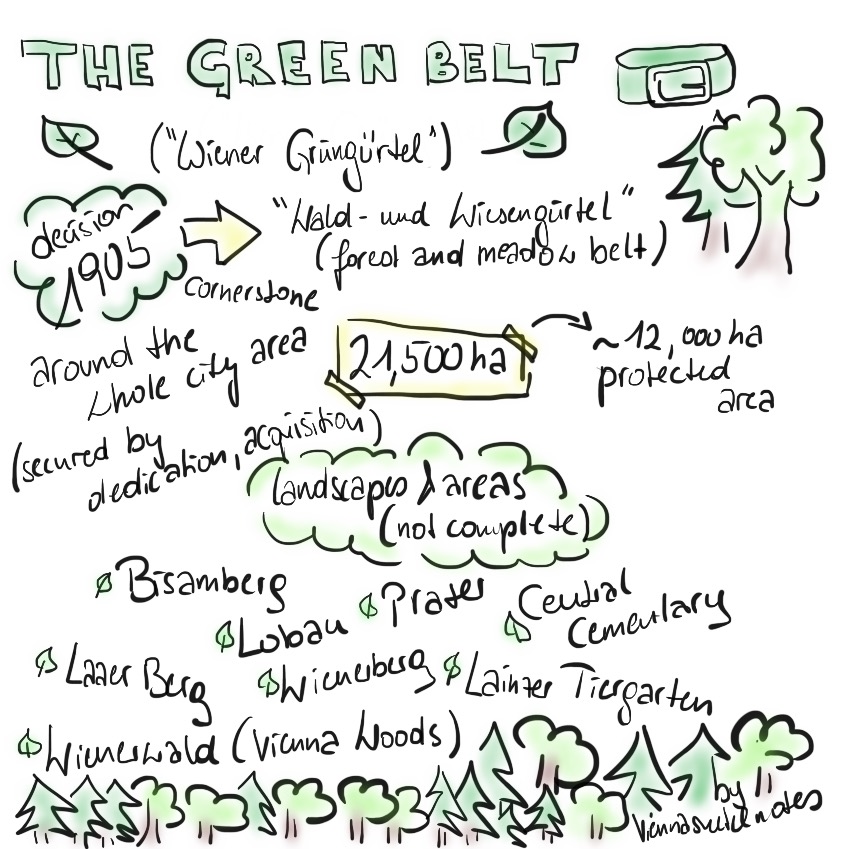 THE GREEN BELT
("Wiener Grüngürtel")
decision
1905
"Wald- und Wiesengürtel"
(forest and meadow belt)
cornerstone
around the
whole city area
(secured by
dedication, acquisition)
21,500 ha
~12,000 ha
protected
area
landscapes & areas
(not complete)
Bisamberg
Prater
Central
Cementary
Lobau
Laaer Berg
Wienerberg
Lainzer Tiergarten
Wienerwald (Vienna Woods)
by
viennasketchnotes